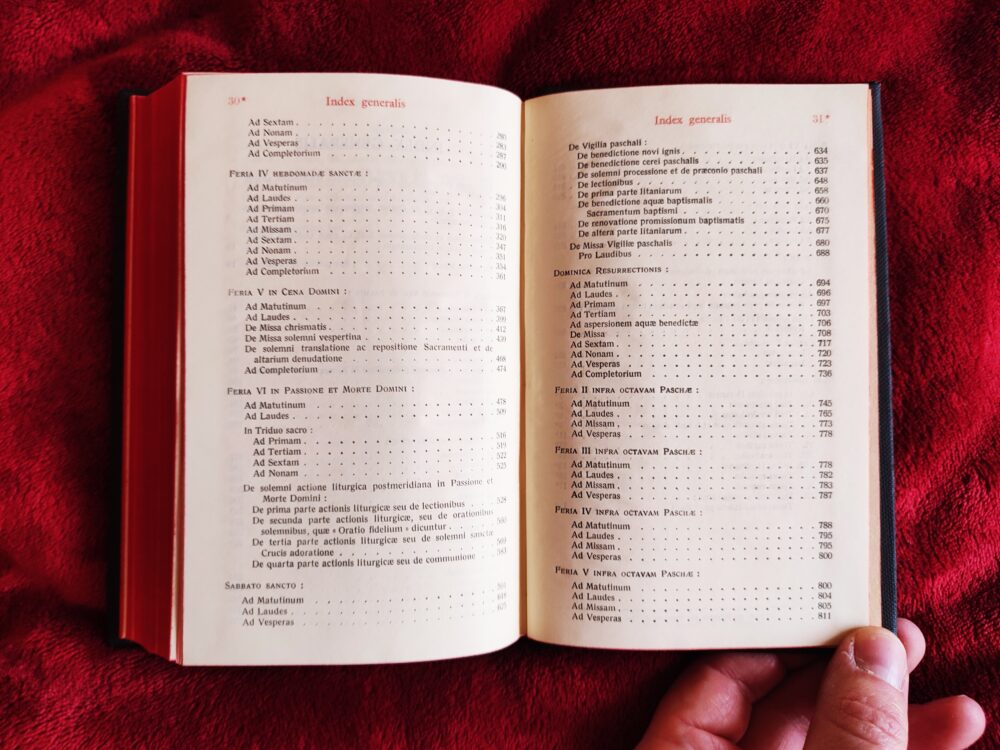 30*
Index generalis
Ad Sextam . . . 280
Ad Nonam . . . 283
Ad Vesperas . . . 287
Ad Completorium . . . 290
FERIA IV HEBDOMADÆ SANCTÆ :
Ad Matutinum . . . 296
Ad Laudes . . . 304
Ad Primam . . . 311
Ad Tertiam . . . 316
Ad Missam . . . 320
Ad Sextam . . . 347
Ad Nonam . . . 351
Ad Vesperas . . . 354
Ad Completorium . . . 361
FERIA V IN CENA DOMINI :
Ad Matutinum . . . 367
Ad Laudes . . . 399
De Missa chrismatis . . . 412
De Missa solemni vespertina . . . 439
De solemni translatione ac repositione Sacramenti et de
altarium denudatione . . . 468
Ad Completorium . . . 474
FERIA VI IN PASSIONE ET MORTE DOMINI :
Ad Matutinum . . . 478
Ad Laudes . . . 509
In Triduo sacro :
Ad Primam . . . 516
Ad Tertiam . . . 519
Ad Sextam . . . 522
Ad Nonam . . . 525
De solemni actione liturgica postmeridiana in Passione et
Morte Domini :
De prima parte actionis liturgicæ seu de lectionibus . . . 528
De secunda parte actionis liturgicæ, seu de orationibus
solemnibus, quæ « Oratio fidelium » dicuntur . . . 560
De tertia parte actionis liturgicæ seu de solemni sanctæ
Crucis adoratione . . . 569
De quarta parte actionis liturgicæ seu de communione . . . 583
SABBATO SANCTO :
Ad Matutinum . . .
Ad Laudes . . .
Ad Vesperas . . .
Index generalis
31*
De Vigilia paschali :
De benedictione novi ignis . . . 634
De benedictione cerei paschalis . . . 635
De solemni processione et de præconio paschali . . . 637
De lectionibus . . . 648
De prima parte litaniarum . . . 658
De benedictione aquæ baptismalis . . . 660
Sacramentum baptismi . . . 670
De renovatione promissionum baptismatis . . . 675
De altera parte litaniarum . . . 677
De Missa Vigiliæ paschalis . . . 680
Pro Laudibus . . . 688
DOMINICA RESURRECTIONIS :
Ad Matutinum . . . 694
Ad Laudes . . . 696
Ad Primam . . . 697
Ad Tertiam . . . 703
Ad aspersionem aquæ benedictæ . . . 706
De Missa . . . 708
Ad Sextam . . . 717
Ad Nonam . . . 720
Ad Vesperas . . . 723
Ad Completorium . . . 736
FERIA II INFRA OCTAVAM PASCHÆ :
Ad Matutinum . . . 745
Ad Laudes . . . 765
Ad Missam . . . 773
Ad Vesperas . . . 778
FERIA III INFRA OCTAVAM PASCHÆ :
Ad Matutinum . . . 778
Ad Laudes . . . 782
Ad Missam . . . 783
Ad Vesperas . . . 787
FERIA IV INFRA OCTAVAM PASCHÆ :
Ad Matutinum . . . 788
Ad Laudes . . . 795
Ad Missam . . . 795
Ad Vesperas . . . 800
FERIA V INFRA OCTAVAM PASCHÆ :
Ad Matutinum . . . 800
Ad Laudes . . . 804
Ad Missam . . . 805
Ad Vesperas . . . 811